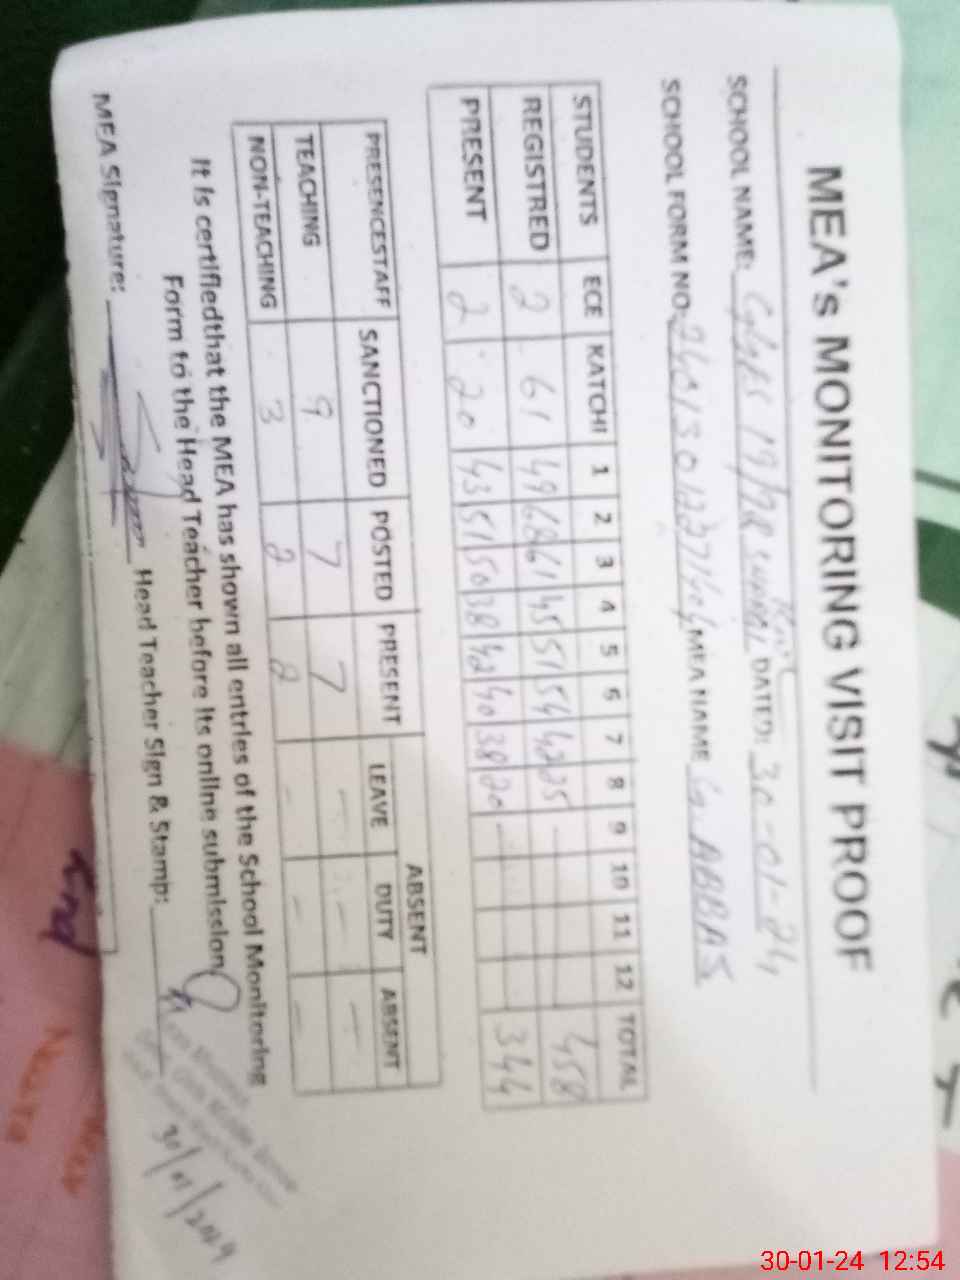 MEA's MONITORING VISIT PROOF
SCHOOL NAME: 19/MR DATED: 30-01-24
SCHOOL FORM NO: MEA NAME G. ABBAS
STUDENTS ECE KATCHI 1 2 3 4 5 6 7 8 9 10 11 12 TOTAL
REGISTRED 2 61 49 68 61 45 51 54 42 25 - 458
PRESENT 2 20 43 51 50 38 42 40 38 20 - 344
ABSENT
PRESENCESTAFF SANCTIONED POSTED PRESENT LEAVE DUTY ABSENT
TEACHING 9 7 7 - - -
NON-TEACHING 3 2 2 - - -
It is certifiedthat the MEA has shown all entries of the School Monitoring
Form to the Head Teacher before its online submission
MEA Signature: Head Teacher Sign & Stamp:
30/01/2024
30-01-24 12:54